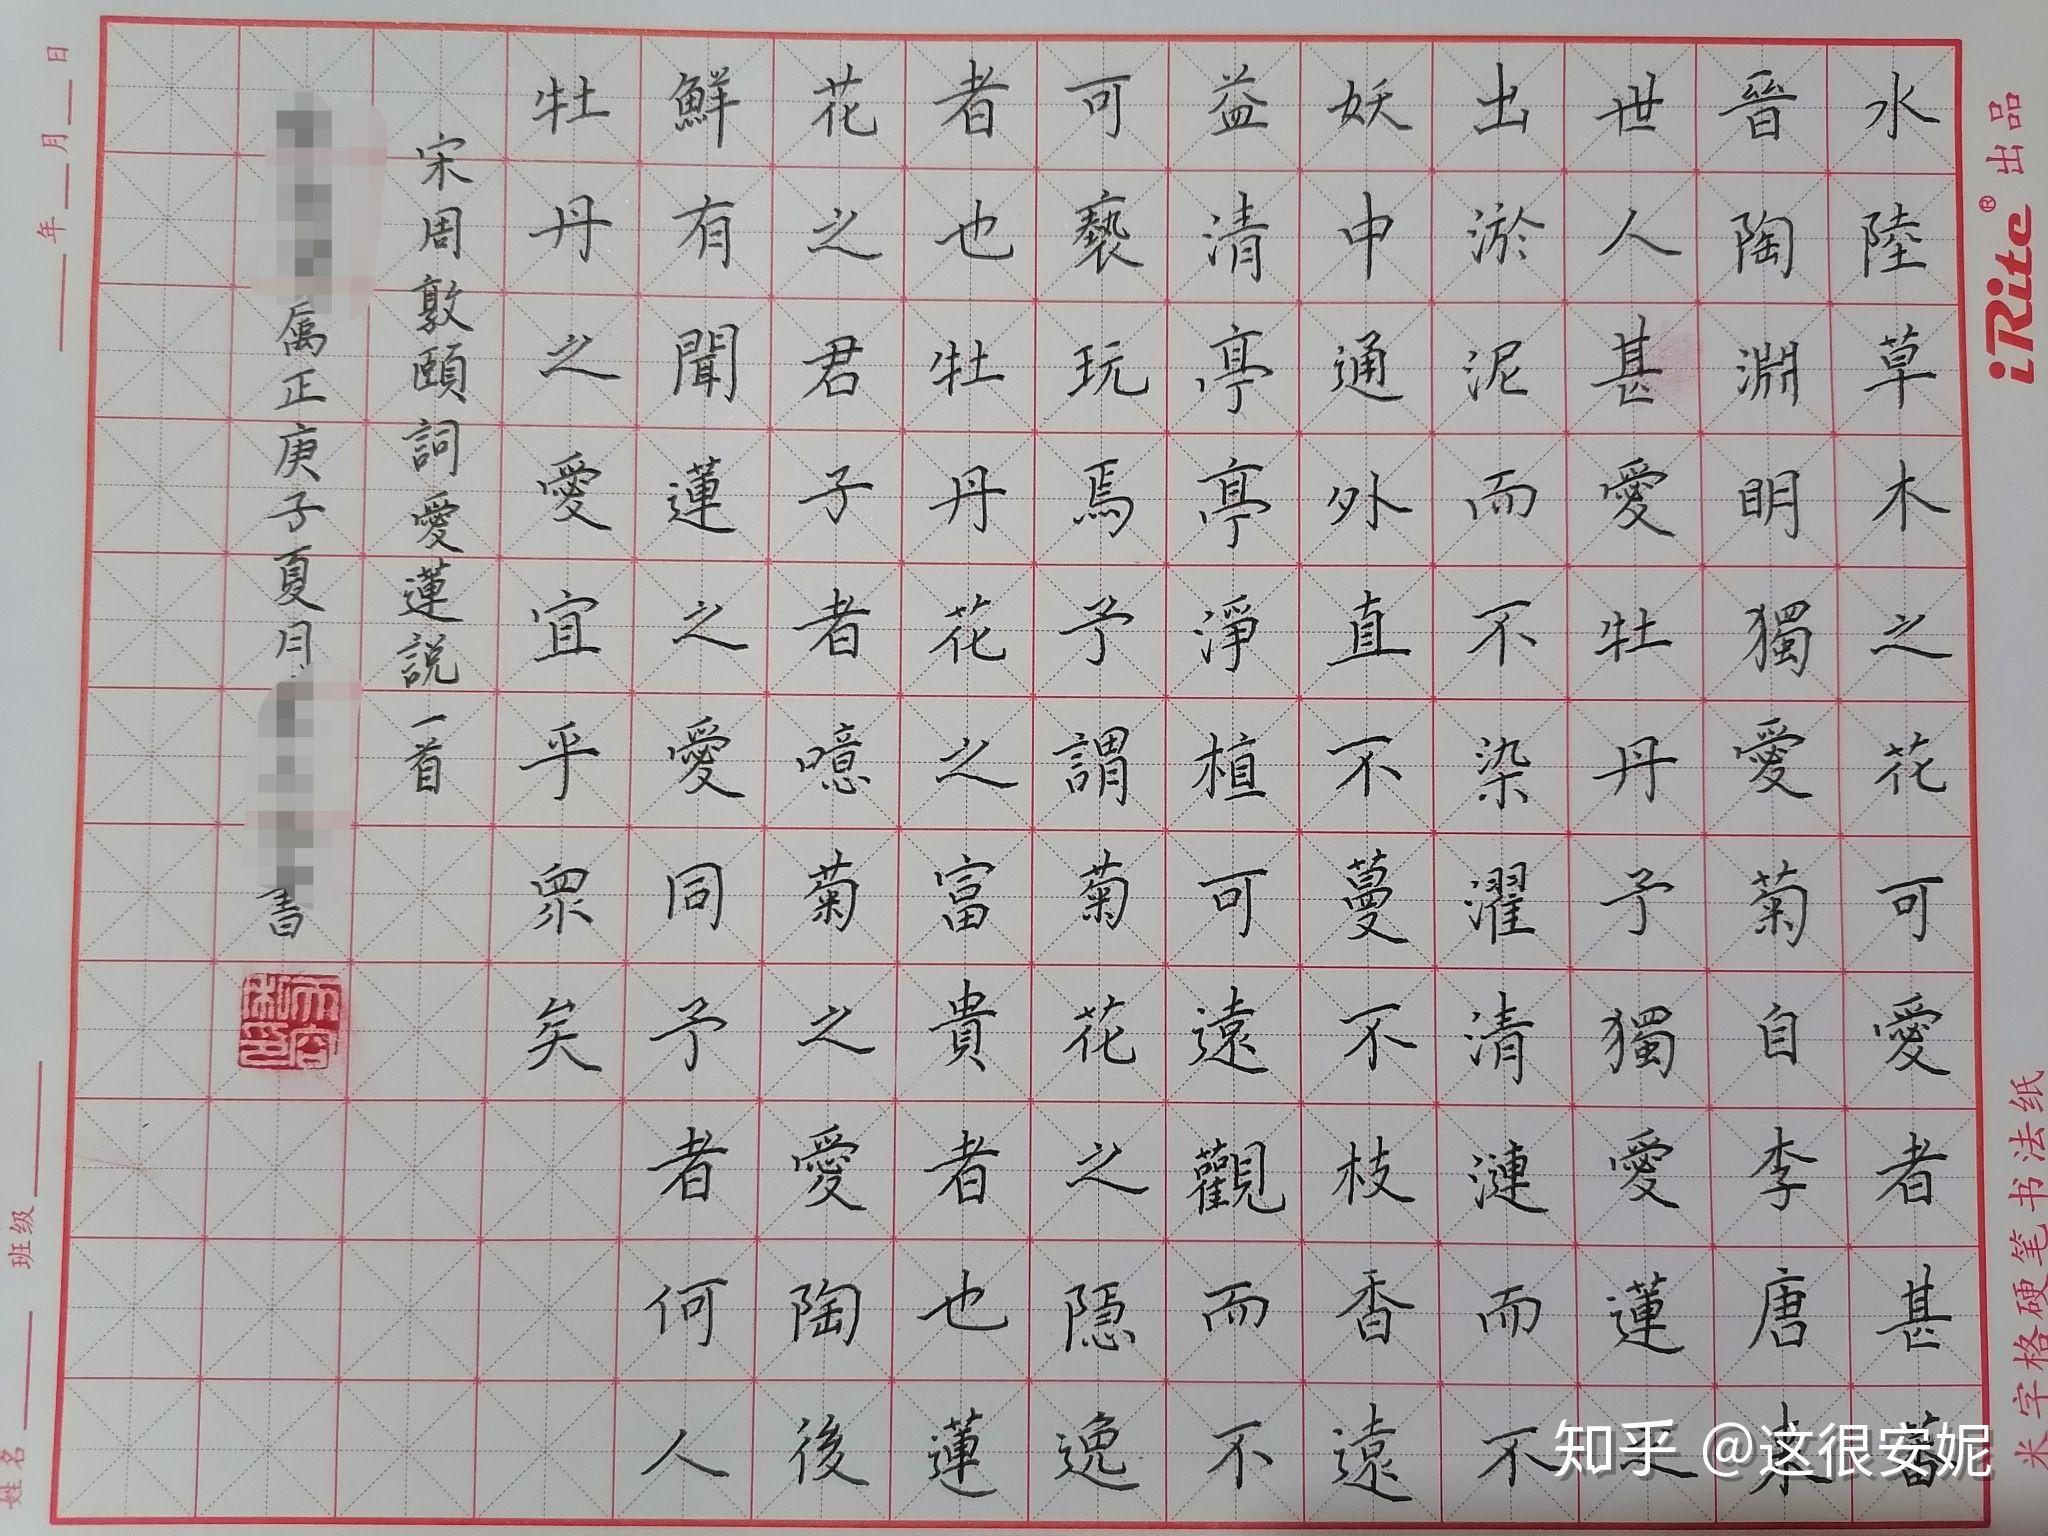 iRite® 出品
米字格硬笔书法纸
水陸草木之花可愛者甚蕃
晉陶淵明獨愛菊自李唐來
世人甚愛牡丹予獨愛蓮之
出淤泥而不染濯清漣而不
妖中通外直不蔓不枝香遠
益清亭亭淨植可遠觀而不
可褻玩焉予謂菊花之隱逸
者也牡丹花之富貴者也蓮
花之君子者噫菊之愛陶後
鮮有聞蓮之愛同予者何人
牡丹之愛宜乎眾矣
宋周敦頤詞愛蓮說一首
属正庚子夏月
書
年 月 日
班级
姓名
知乎 @这很安妮